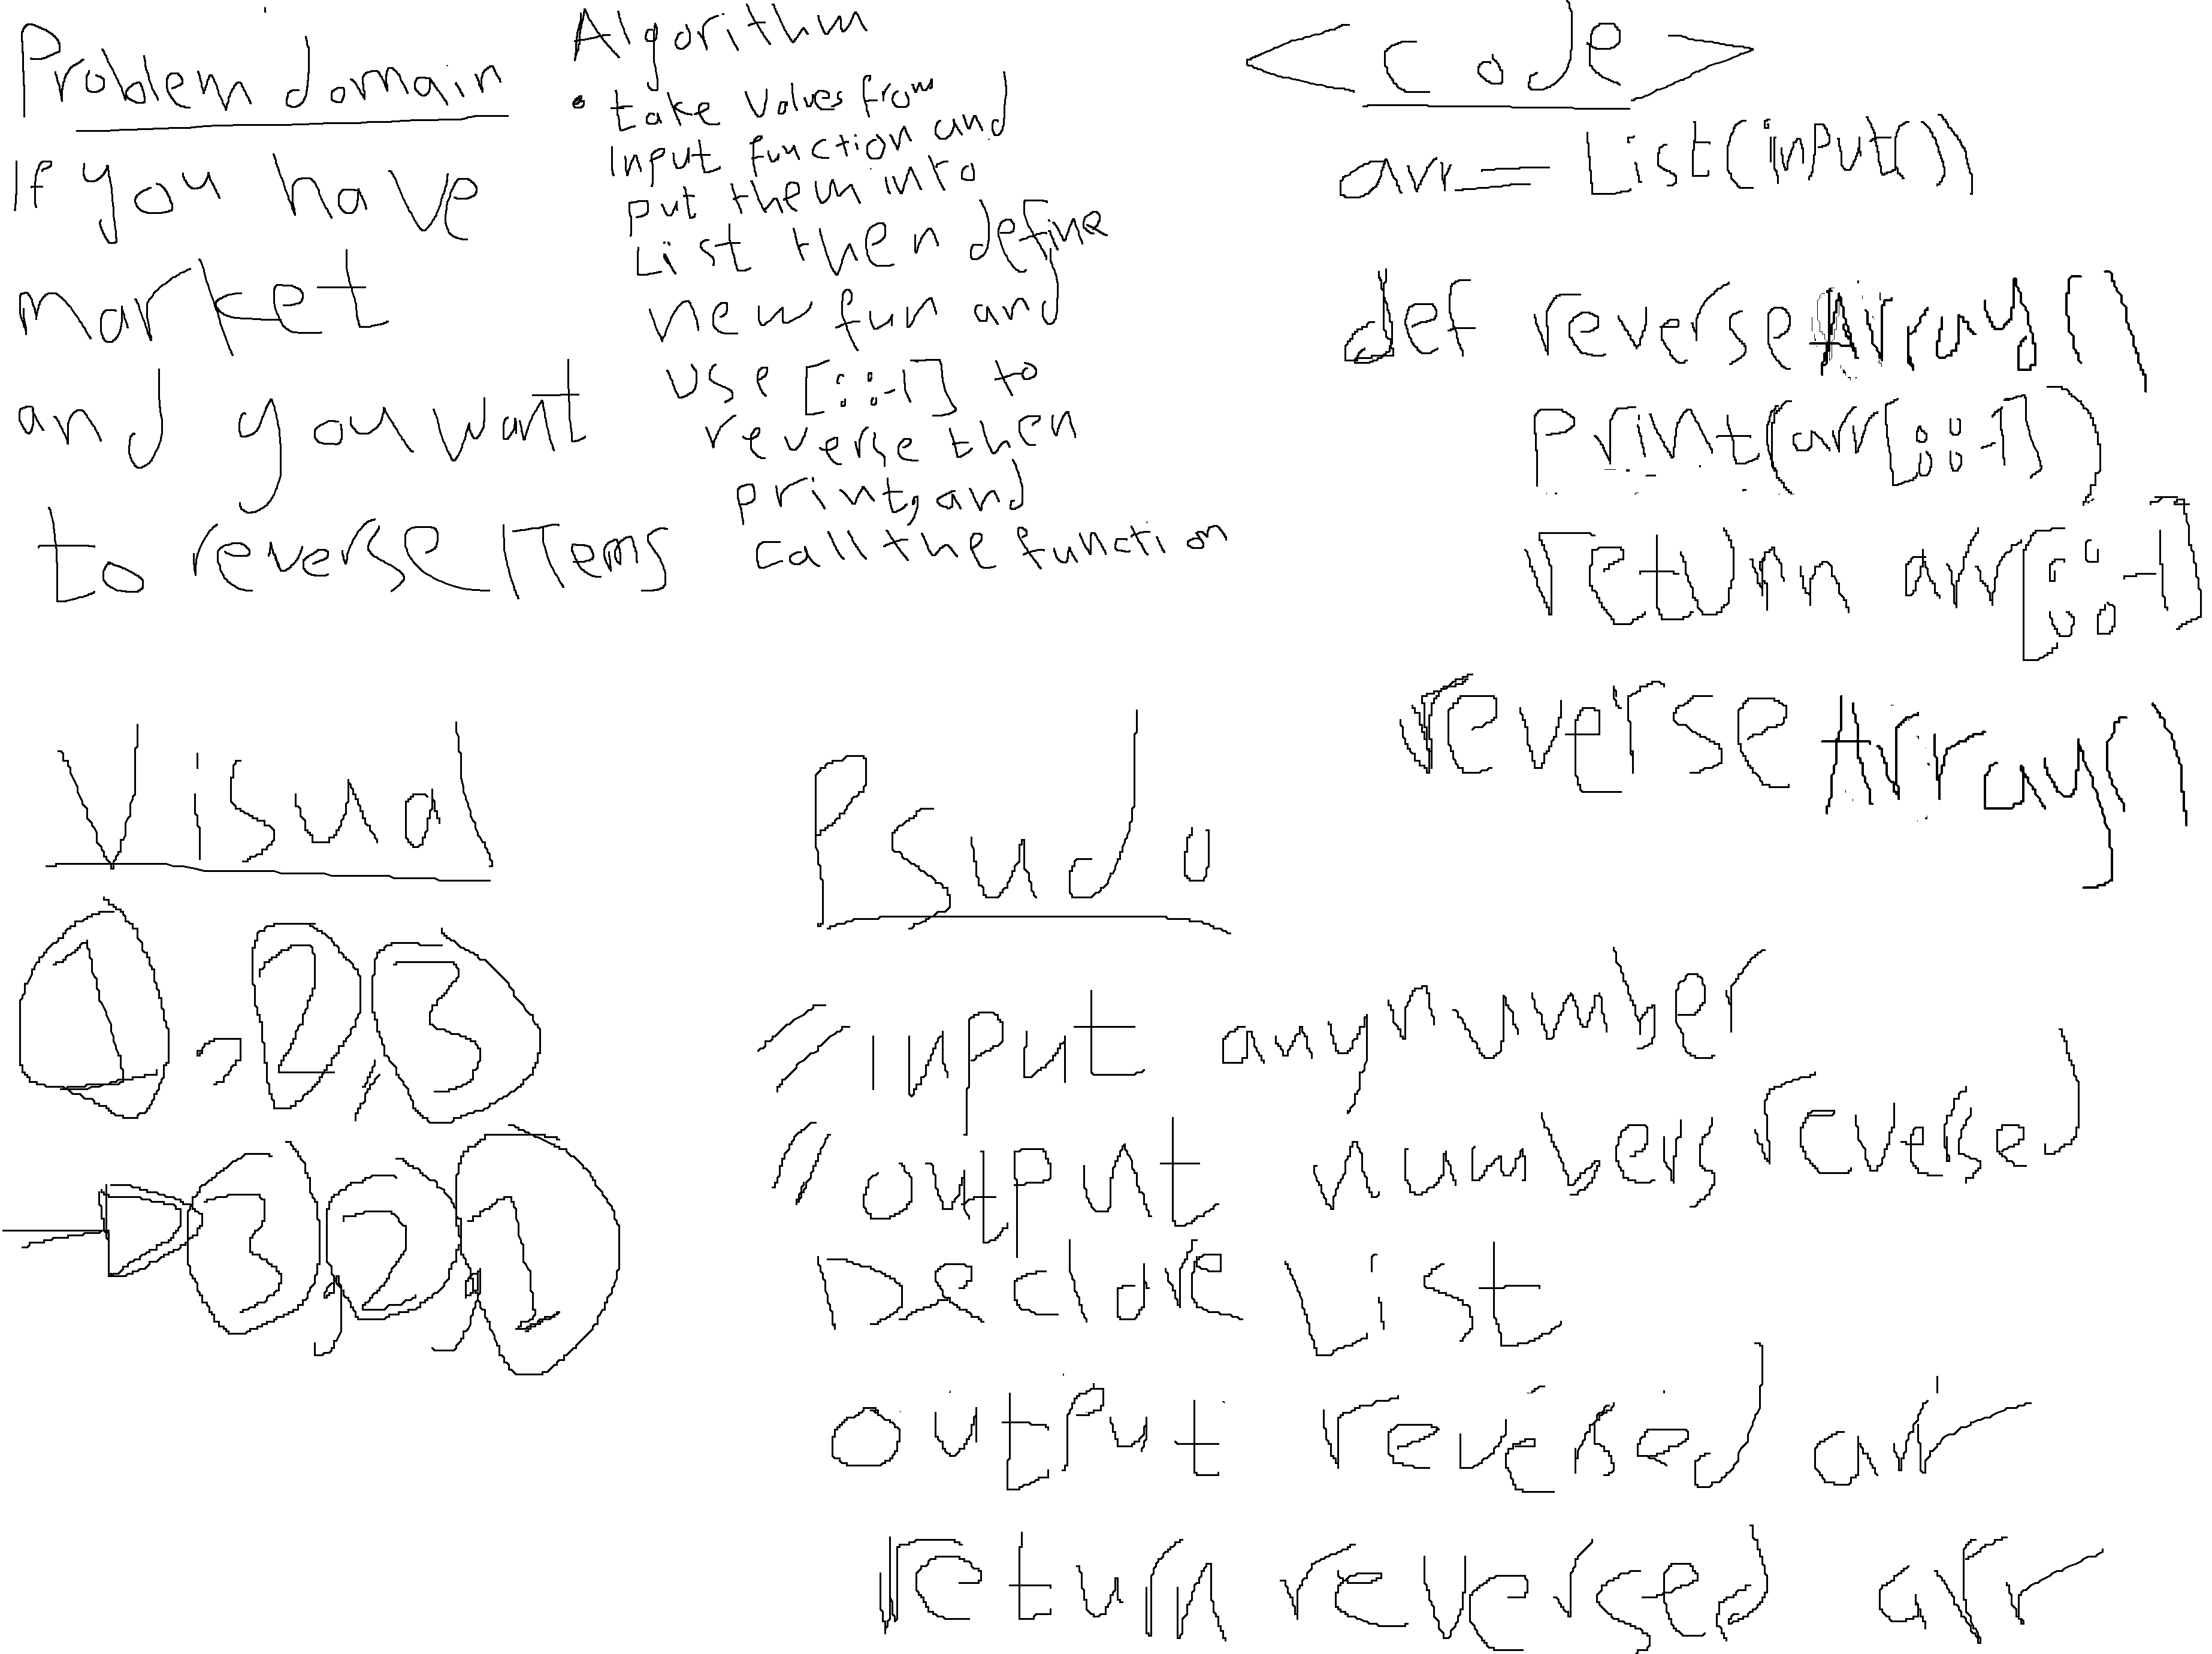 Problem domain
If you have
market
and you want
to reverse ITems
Algorithm
• take values from
Input function and
put them into
List then define
new fun and
use [::-1] to
reverse then
print, and
call the function
<code>
arr = List(input())
def reverseArray()
print(arr[::-1])
return arr[::-1]
reverseArray()
Visual
1, 2, 3
→ 3, 2, 1
Psudo
// input any number
// output numbers reversed
Declare List
output reversed arr
return reversed arr